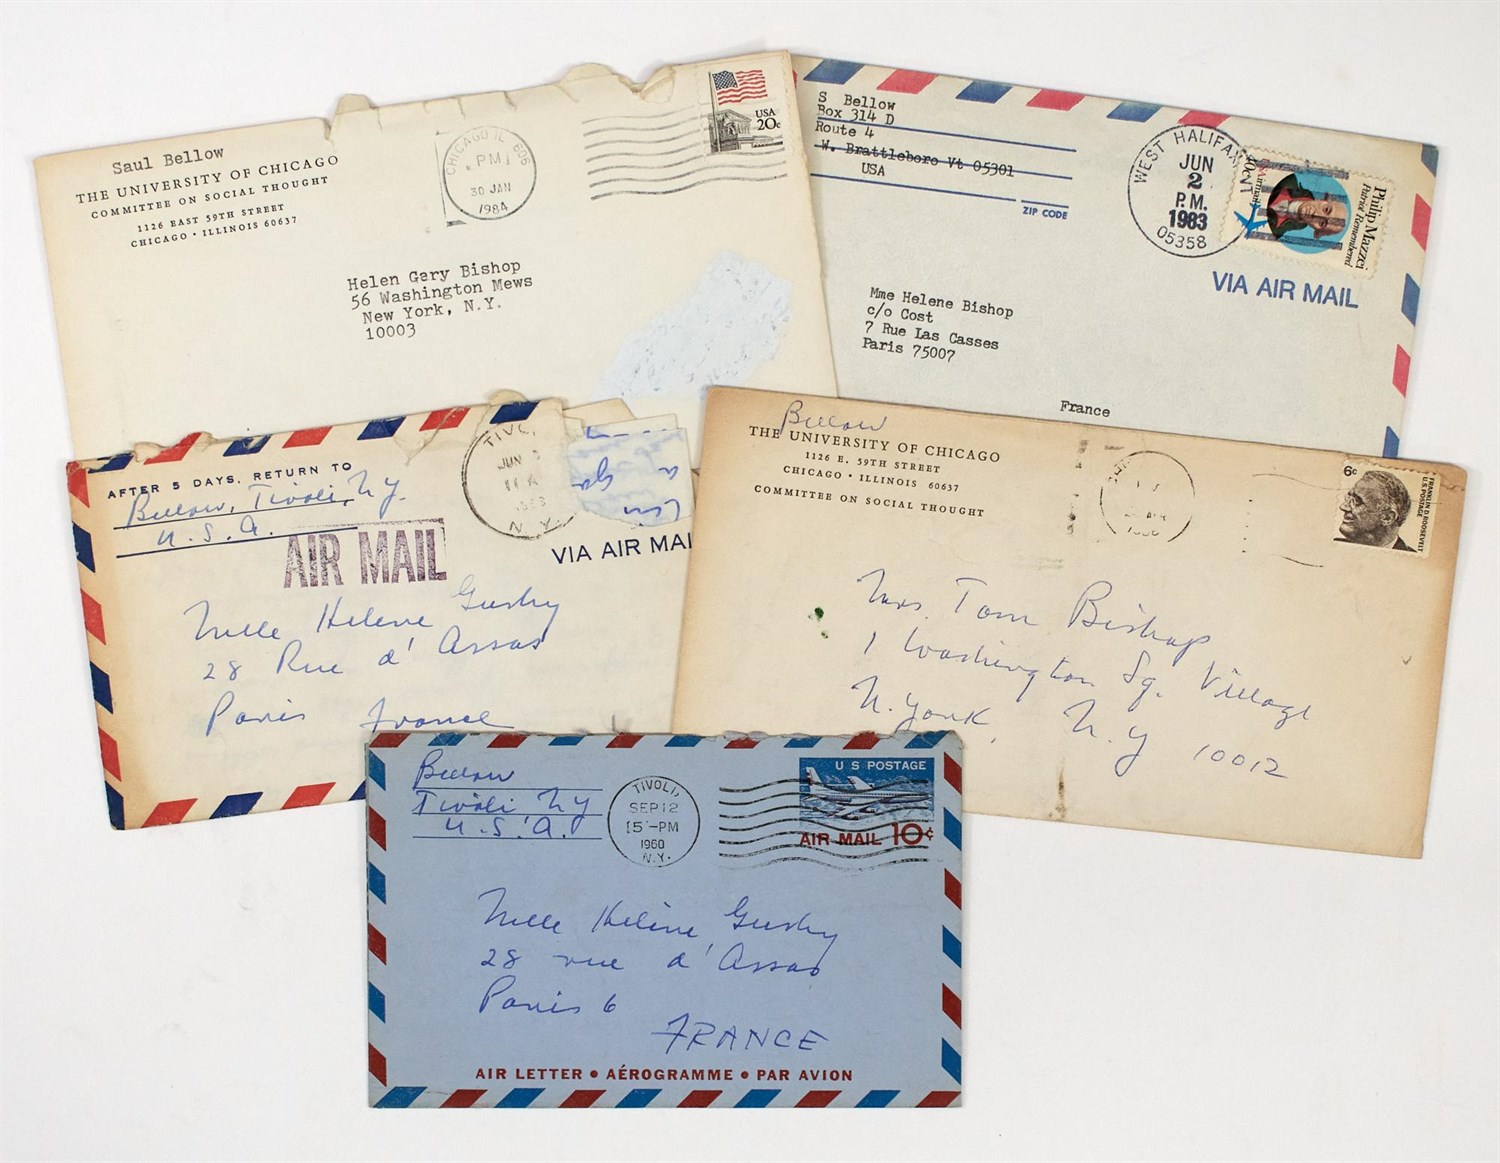 Saul Bellow
THE UNIVERSITY OF CHICAGO
COMMITTEE ON SOCIAL THOUGHT
1126 EAST 59TH STREET
CHICAGO • ILLINOIS 60637
CHICAGO IL 606
PM
30 JAN
1984
USA
20c
Helen Gary Bishop
56 Washington Mews
New York, N.Y.
10003
S Bellow
Box 314 D
Route 4
W. Brattleboro Vt 05301
USA
ZIP CODE
WEST HALIFAX
JUN
2
P.M.
1983
05358
40c
USAirmail
Philip Mazzei
Patriot Remembered
VIA AIR MAIL
Mme Helene Bishop
c/o Cost
7 Rue Las Casses
Paris 75007
France
AFTER 5 DAYS, RETURN TO
Bellow, Tivoli, NY.
U.S.A.
AIR MAIL
JUN
N.Y.
VIA AIR MAI
Mlle Helene Gushy
28 Rue d'Assas
Paris France
Bellow
THE UNIVERSITY OF CHICAGO
1126 E. 59TH STREET
CHICAGO • ILLINOIS 60637
COMMITTEE ON SOCIAL THOUGHT
6c
FRANKLIN D. ROOSEVELT
U.S. POSTAGE
Mrs. Tom Bishop
1 Washington Sq. Village
N. York, N.Y 10012
Bellow
Tivoli NY
U.S.A.
TIVOLI,
SEP 12
5-PM
1960
N.Y.
U S POSTAGE
AIR MAIL 10¢
Mlle Hélène Gushy
28 rue d'Assas
Paris 6
FRANCE
AIR LETTER • AÉROGRAMME • PAR AVION